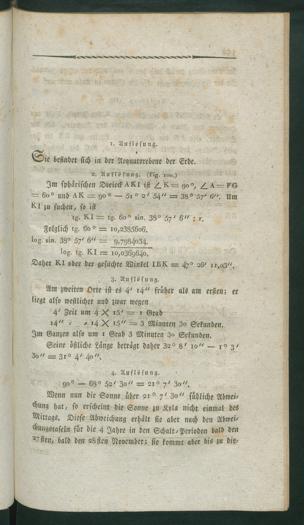 1. Auflösung.
Sie befindet sich in der Aequatorebene der Erde.
2. Auflösung. (Fig. 100.)
Im sphärischen Dreieck AKI ist ∠K = 90°, ∠A = FG
= 60° und AK = 90° — 51° 2′ 54″ = 38° 57′ 6″. Um
KI zu suchen, so ist
tg. KI = tg. 60° sin. 38° 57′ 6″ : 1.
Folglich tg. 60° = 10,2385606,
log. sin. 38° 57′ 6″ = 9,7984034,
log. tg. KI = 10,0369640,
Daher KI oder der gesuchte Winkel IBK = 47° 26′ 11,03″.
3. Auflösung.
Am zweiten Orte ist es 4′ 14″ früher als am ersten; er
liegt also westlicher und zwar wegen
4′ Zeit um 4 × 15′ = 1 Grad
14″ „ „ 14 × 15″ = 3 Minuten 30 Sekunden.
Im Ganzen also um 1 Grad 3 Minuten 30 Sekunden.
Seine östliche Länge beträgt daher 32° 8′ 10″ — 1° 3′
30″ = 31° 4′ 40″.
4. Auflösung.
90° — 68° 52′ 30″ = 21° 7′ 30″.
Wenn nun die Sonne über 21° 7′ 30″ südliche Abwei-
chung hat, so erscheint die Sonne zu Kola nicht einmal des
Mittags. Diese Abweichung erhält sie aber nach den Abwei-
chungstafeln für die 4 Jahre in den Schalt-Perioden bald den
27sten, bald den 28sten November; sie kommt aber bis zu die-